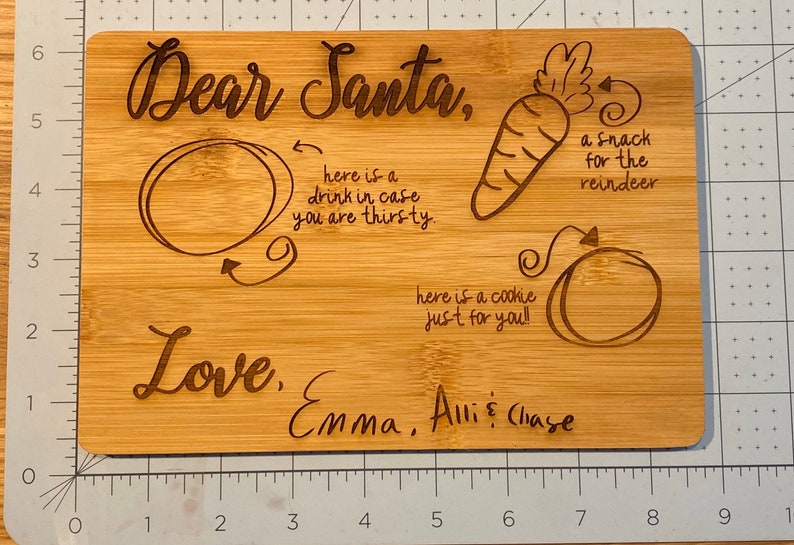 Dear Santa,
here is a
drink in case
you are thirsty.
a snack
for the
reindeer
here is a cookie
just for you!!
Love,
Emma, Alli & Chase
6
5
4
3
2
1
0
0 1 2 3 4 5 6 7 8 9